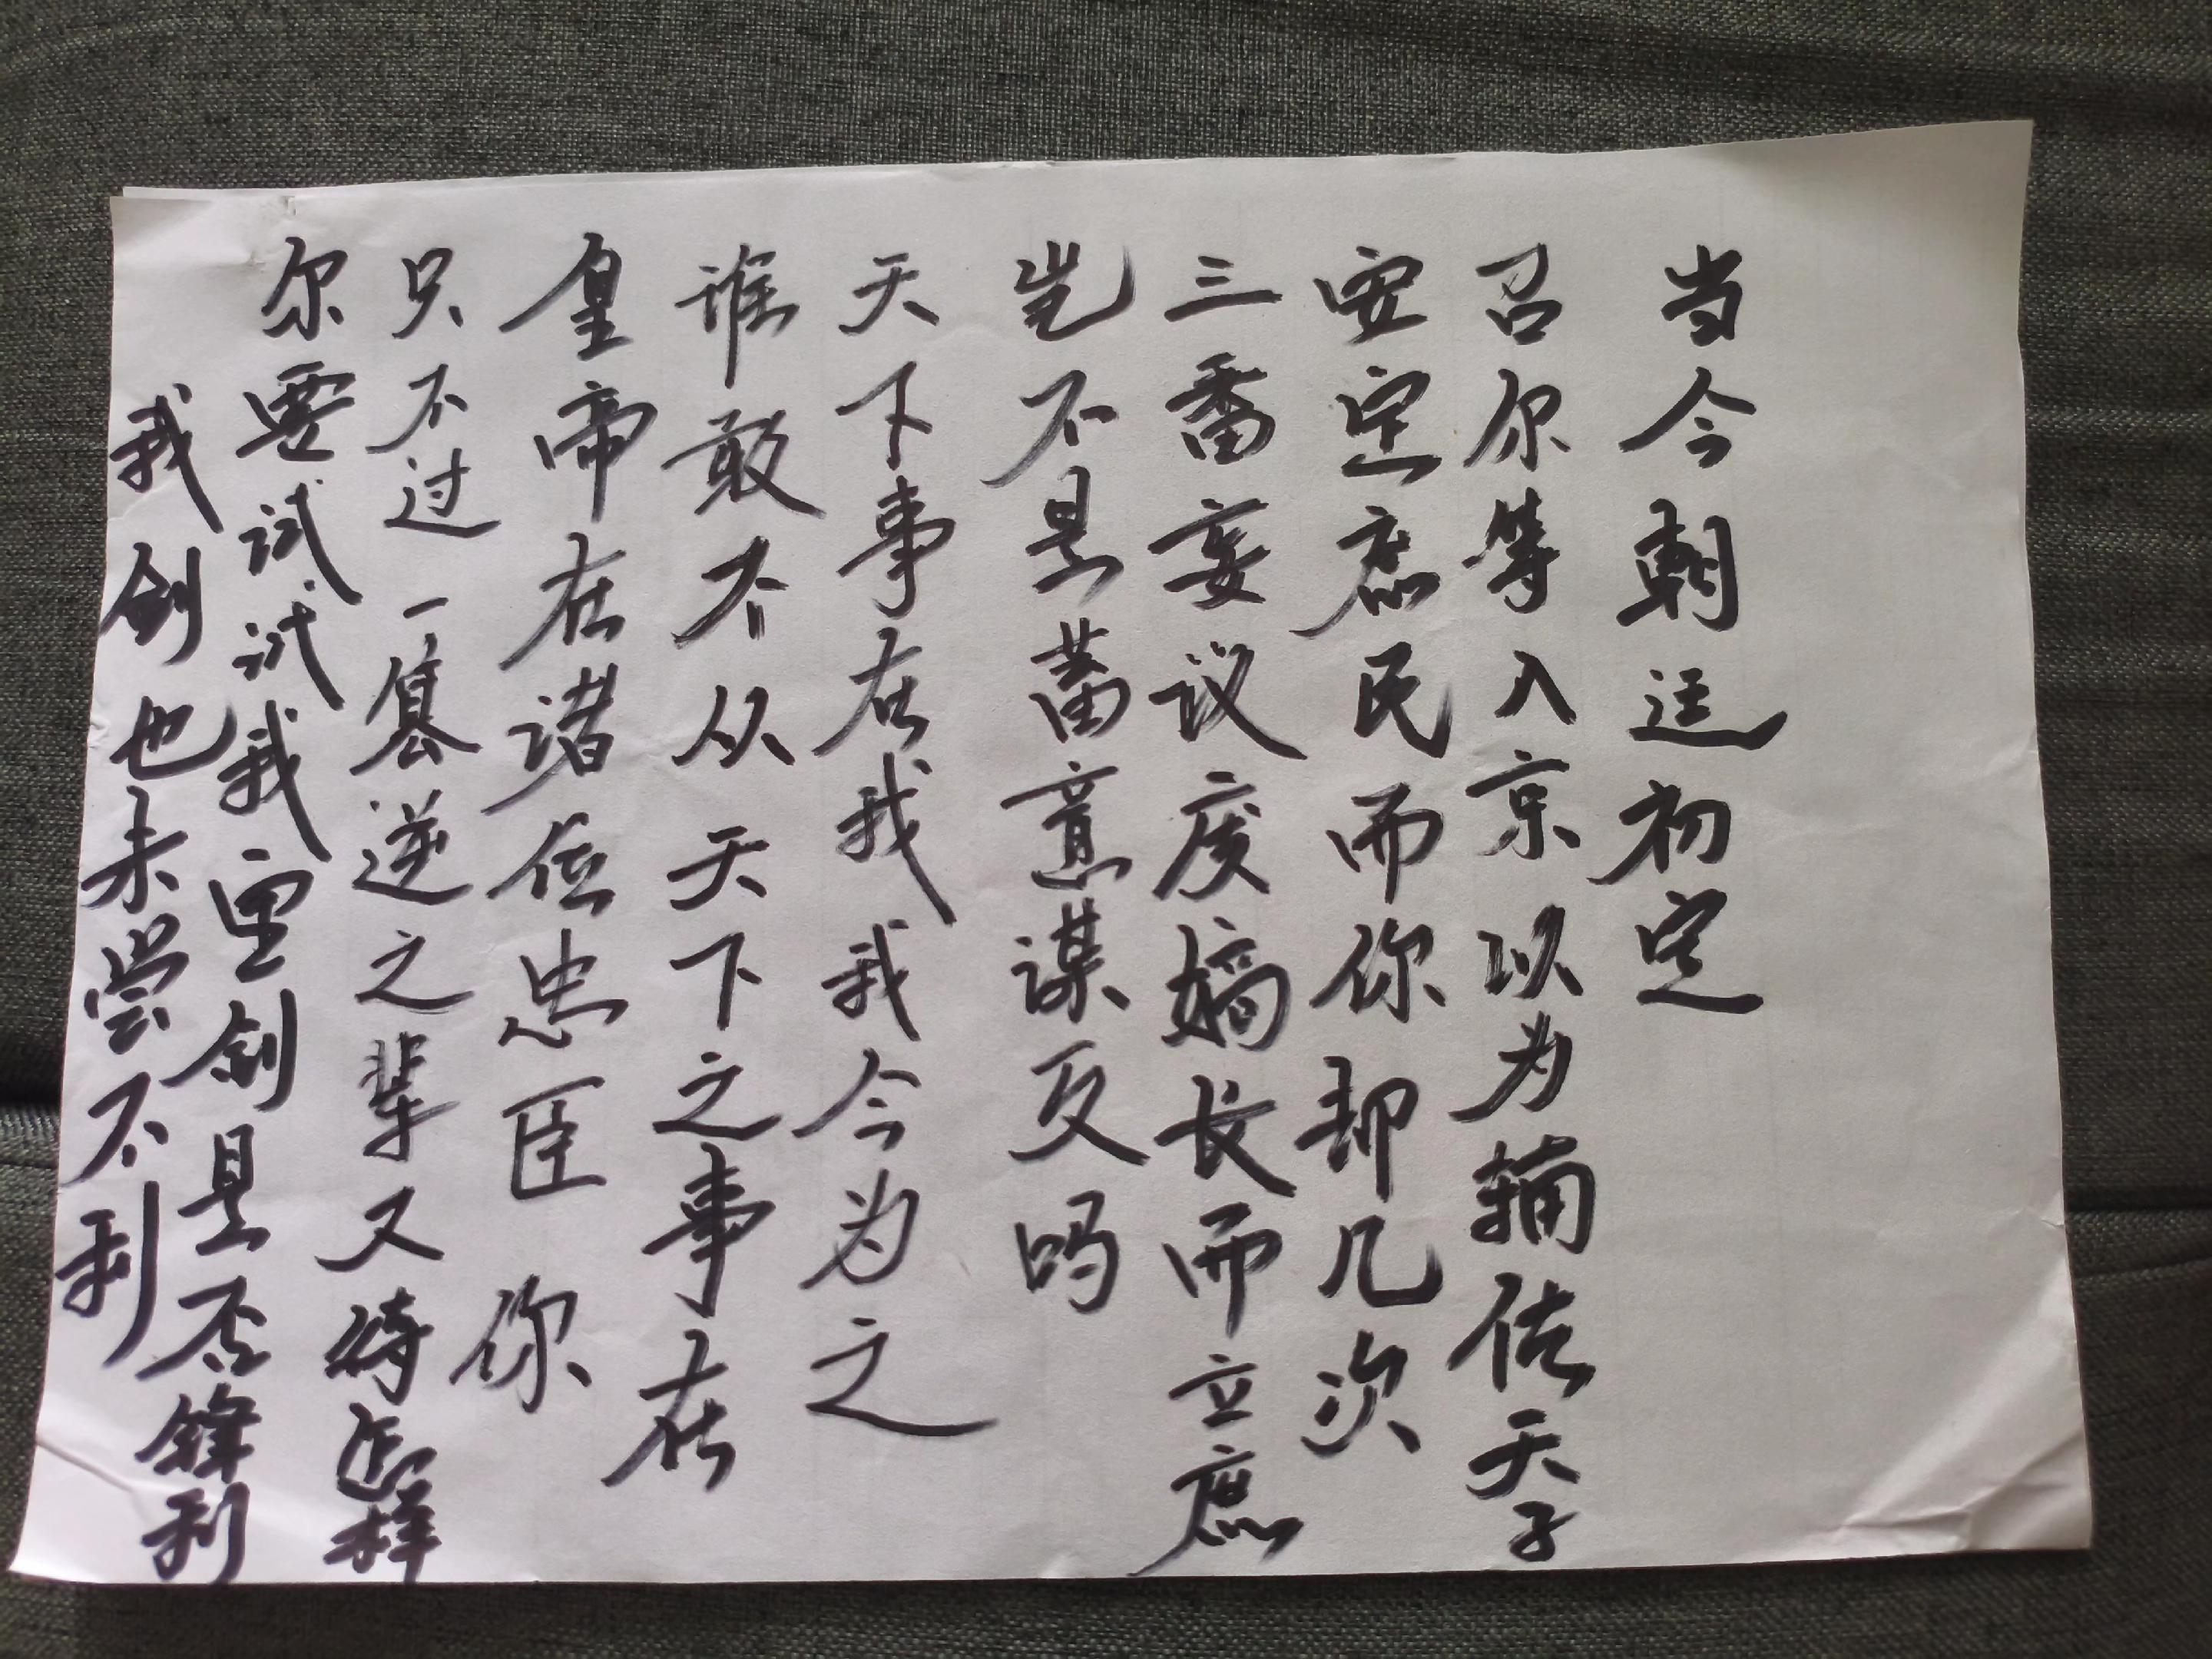 当今朝廷初定
召尔等入京以为辅佐天子
安定庶民而你却几次
三番妄议废嫡长而立庶
岂不是蓄意谋反吗
天下事在我我今为之
谁敢不从天下之事在
皇帝在诸位忠臣你
只不过一篡逆之辈又待怎样
尔要试试我宝剑是否锋利
我剑也未尝不利